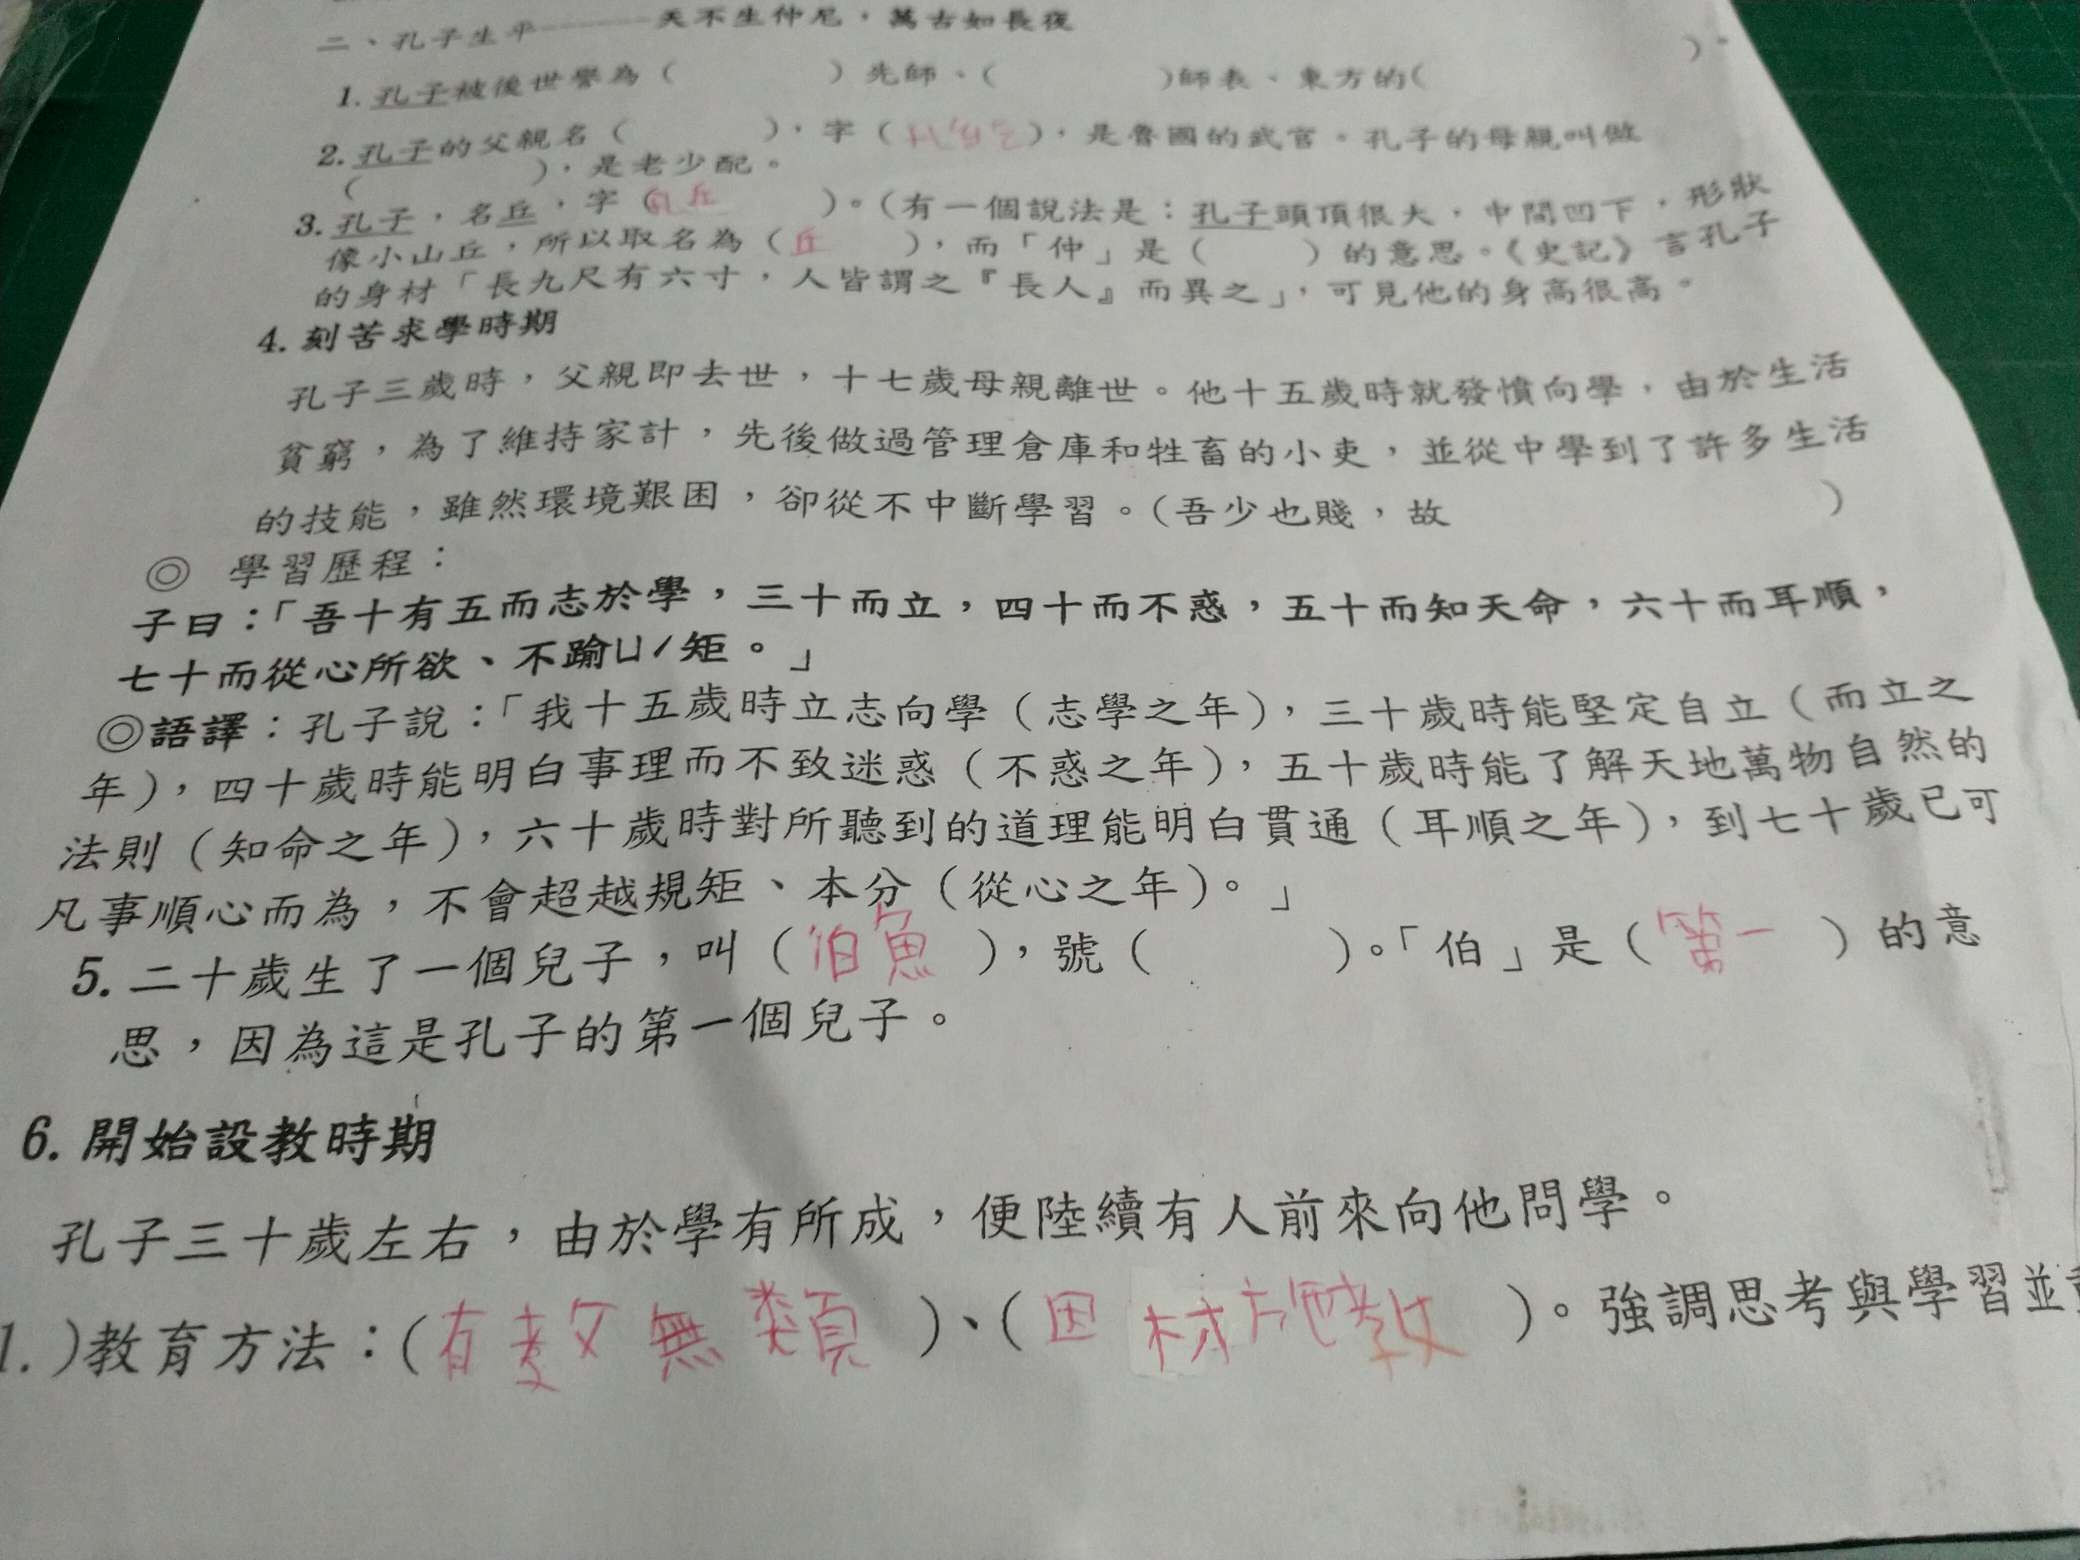 二、孔子生平———天不生仲尼，萬古如長夜
1. 孔子被後世譽為（　　　）先師、（　　　）師表、東方的（　　　）。
2. 孔子的父親名（　　　），字（　　　），是魯國的武官。孔子的母親叫做
（　　　），是老少配。
3. 孔子，名丘，字（孔丘　　）。（有一個說法是：孔子頭頂很大，中間凹下，形狀
像小山丘，所以取名為（丘　　），而「仲」是（　　）的意思。《史記》言孔子
的身材「長九尺有六寸，人皆謂之『長人』而異之」，可見他的身高很高。
4. 刻苦求學時期
孔子三歲時，父親即去世，十七歲母親離世。他十五歲時就發憤向學，由於生活
貧窮，為了維持家計，先後做過管理倉庫和牲畜的小吏，並從中學到了許多生活
的技能，雖然環境艱困，卻從不中斷學習。（吾少也賤，故　　　）
◎ 學習歷程：
子曰：「吾十有五而志於學，三十而立，四十而不惑，五十而知天命，六十而耳順，
七十而從心所欲、不踰ㄩˊ矩。」
◎語譯：孔子說：「我十五歲時立志向學（志學之年），三十歲時能堅定自立（而立之
年），四十歲時能明白事理而不致迷惑（不惑之年），五十歲時能了解天地萬物自然的
法則（知命之年），六十歲時對所聽到的道理能明白貫通（耳順之年），到七十歲已可
凡事順心而為，不會超越規矩、本分（從心之年）。」
5. 二十歲生了一個兒子，叫（伯魚），號（　　　）。「伯」是（第一）的意
思，因為這是孔子的第一個兒子。
6. 開始設教時期
孔子三十歲左右，由於學有所成，便陸續有人前來向他問學。
1.)教育方法：（有教無類）、（因材施教）。強調思考與學習並